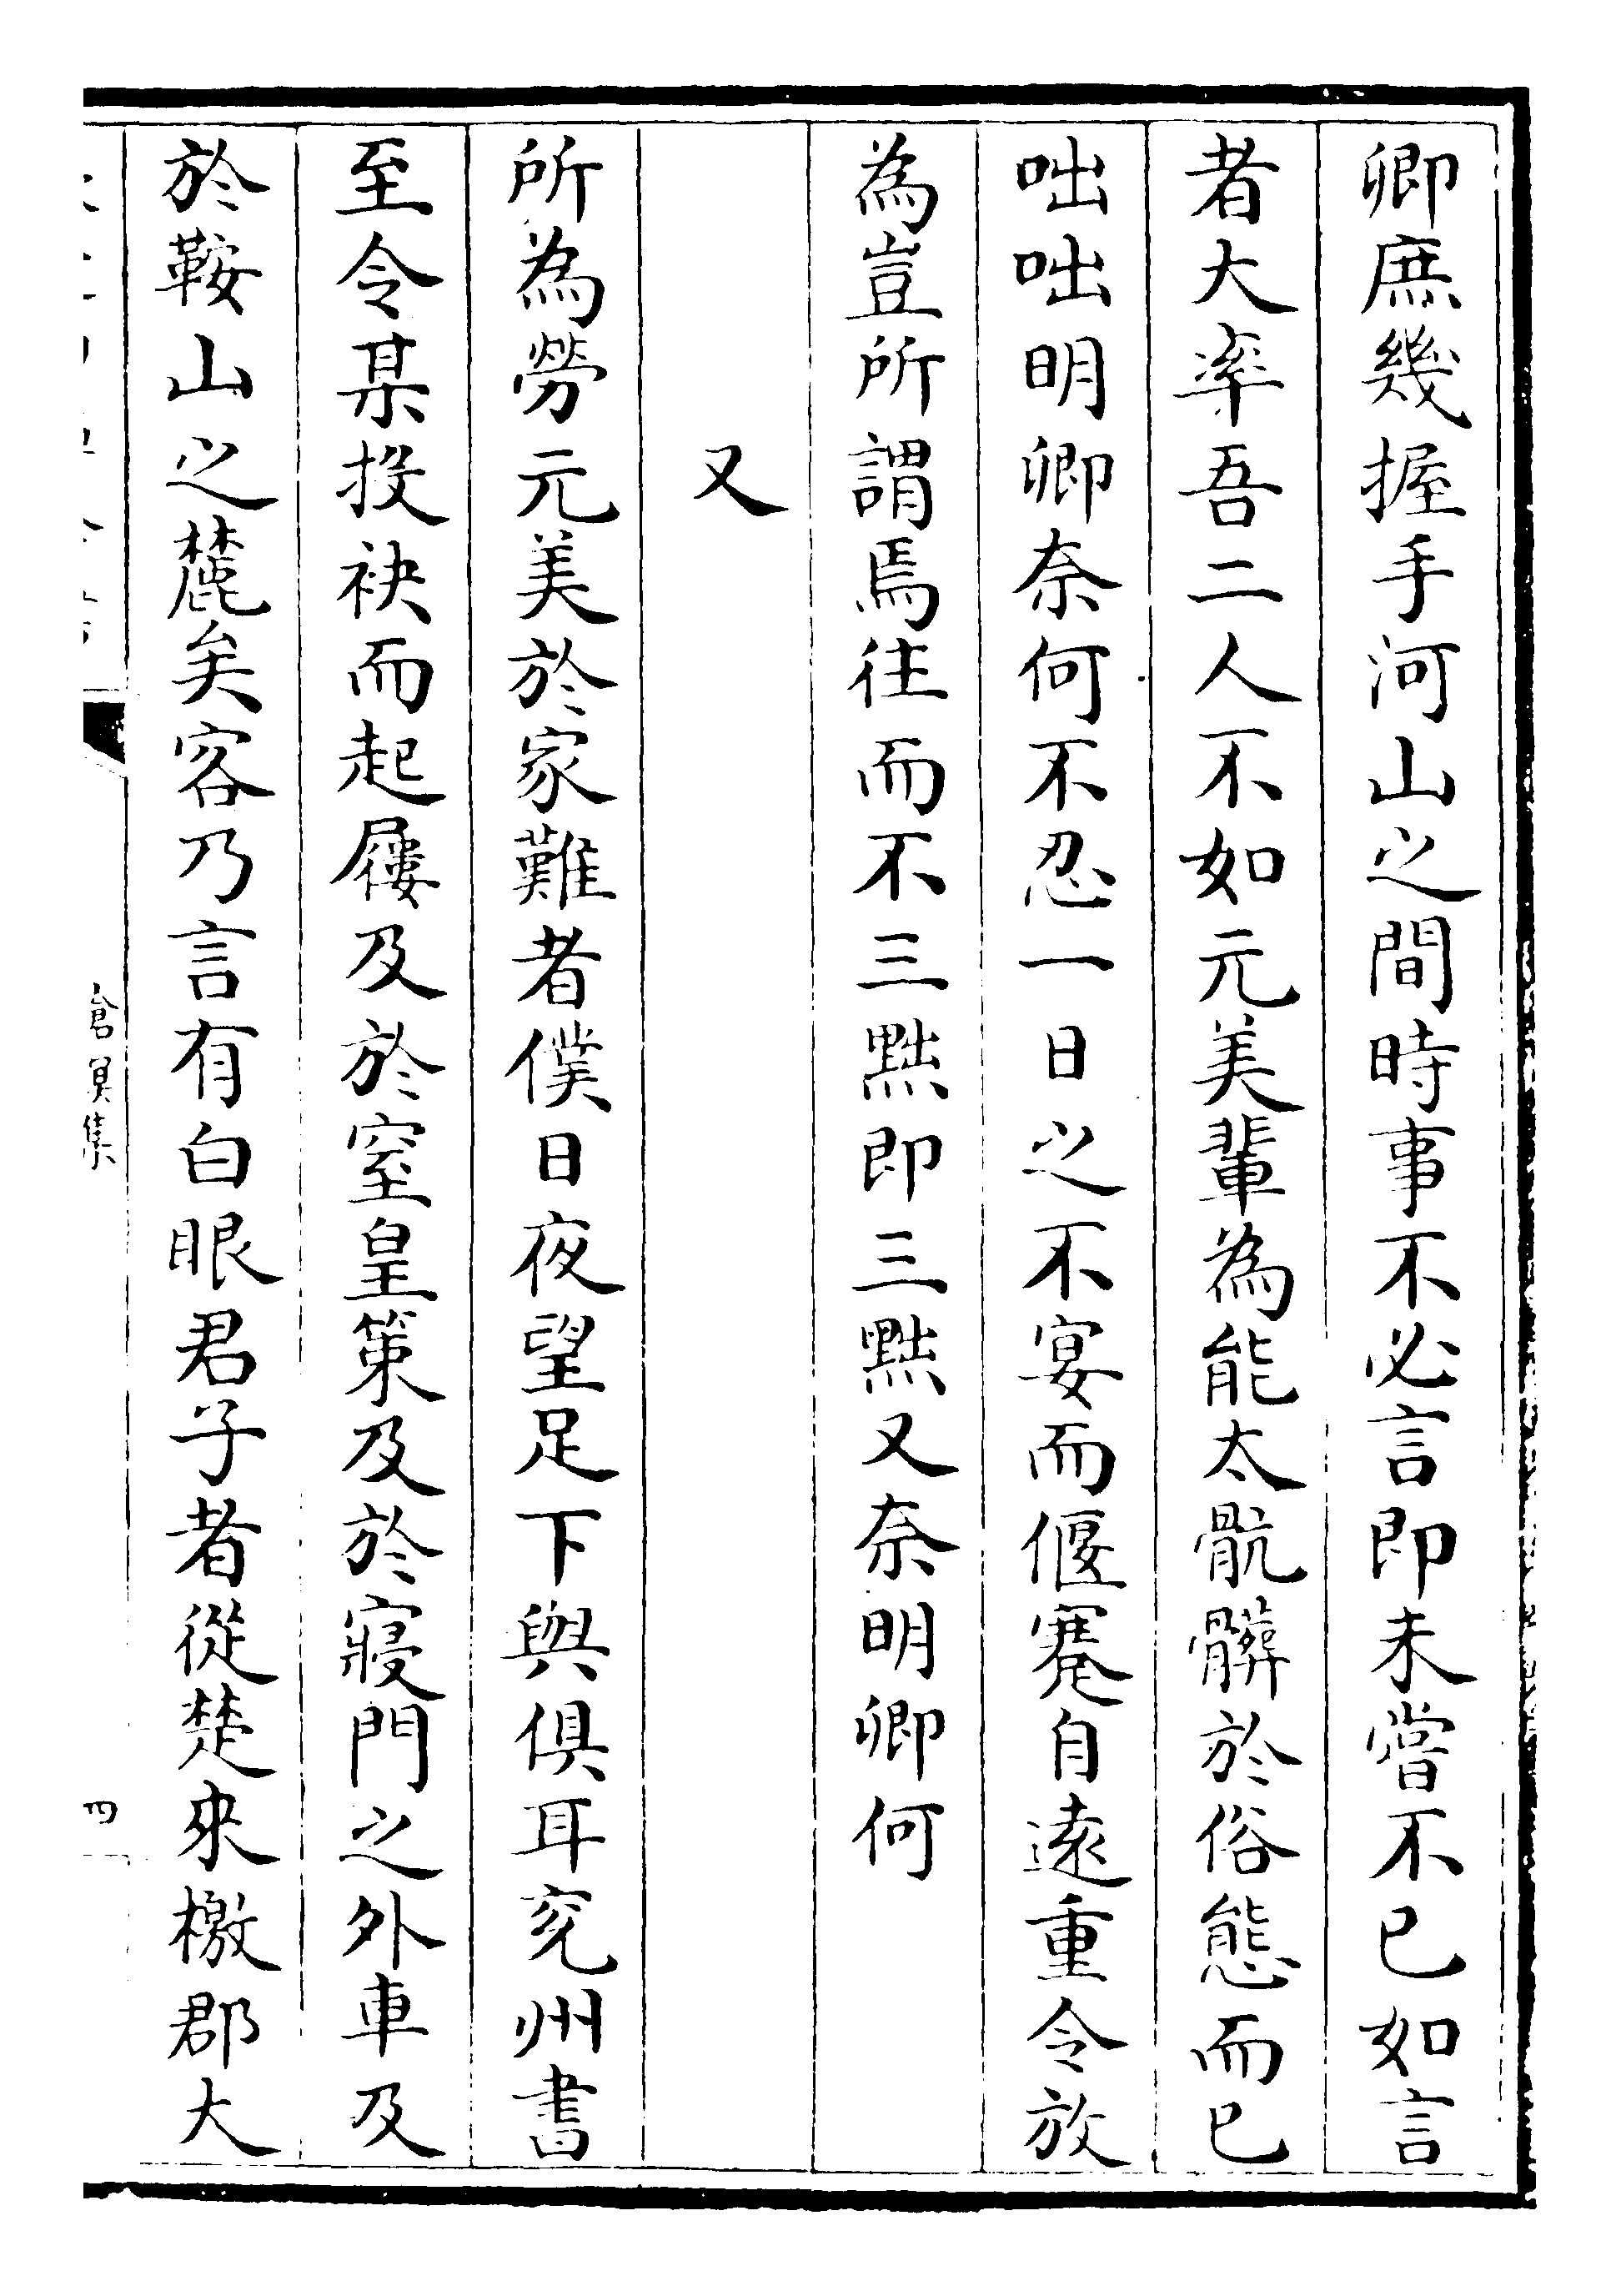 卿庶幾握手河山之間時事不必言即未嘗不已如言
者大率吾二人不如元美輩為能太骯髒於俗態而已
咄咄明卿奈何不忍一日之不宴而偃蹇自遠重令放
為豈所謂焉往而不三黜即三黜又奈明卿何
又
所為勞元美於家難者僕日夜望足下與俱耳兖州書
至令某投袂而起屨及於窒皇策及於寢門之外車及
於鞍山之麓矣客乃言有白眼君子者從楚來檄郡大
倉冥集
四